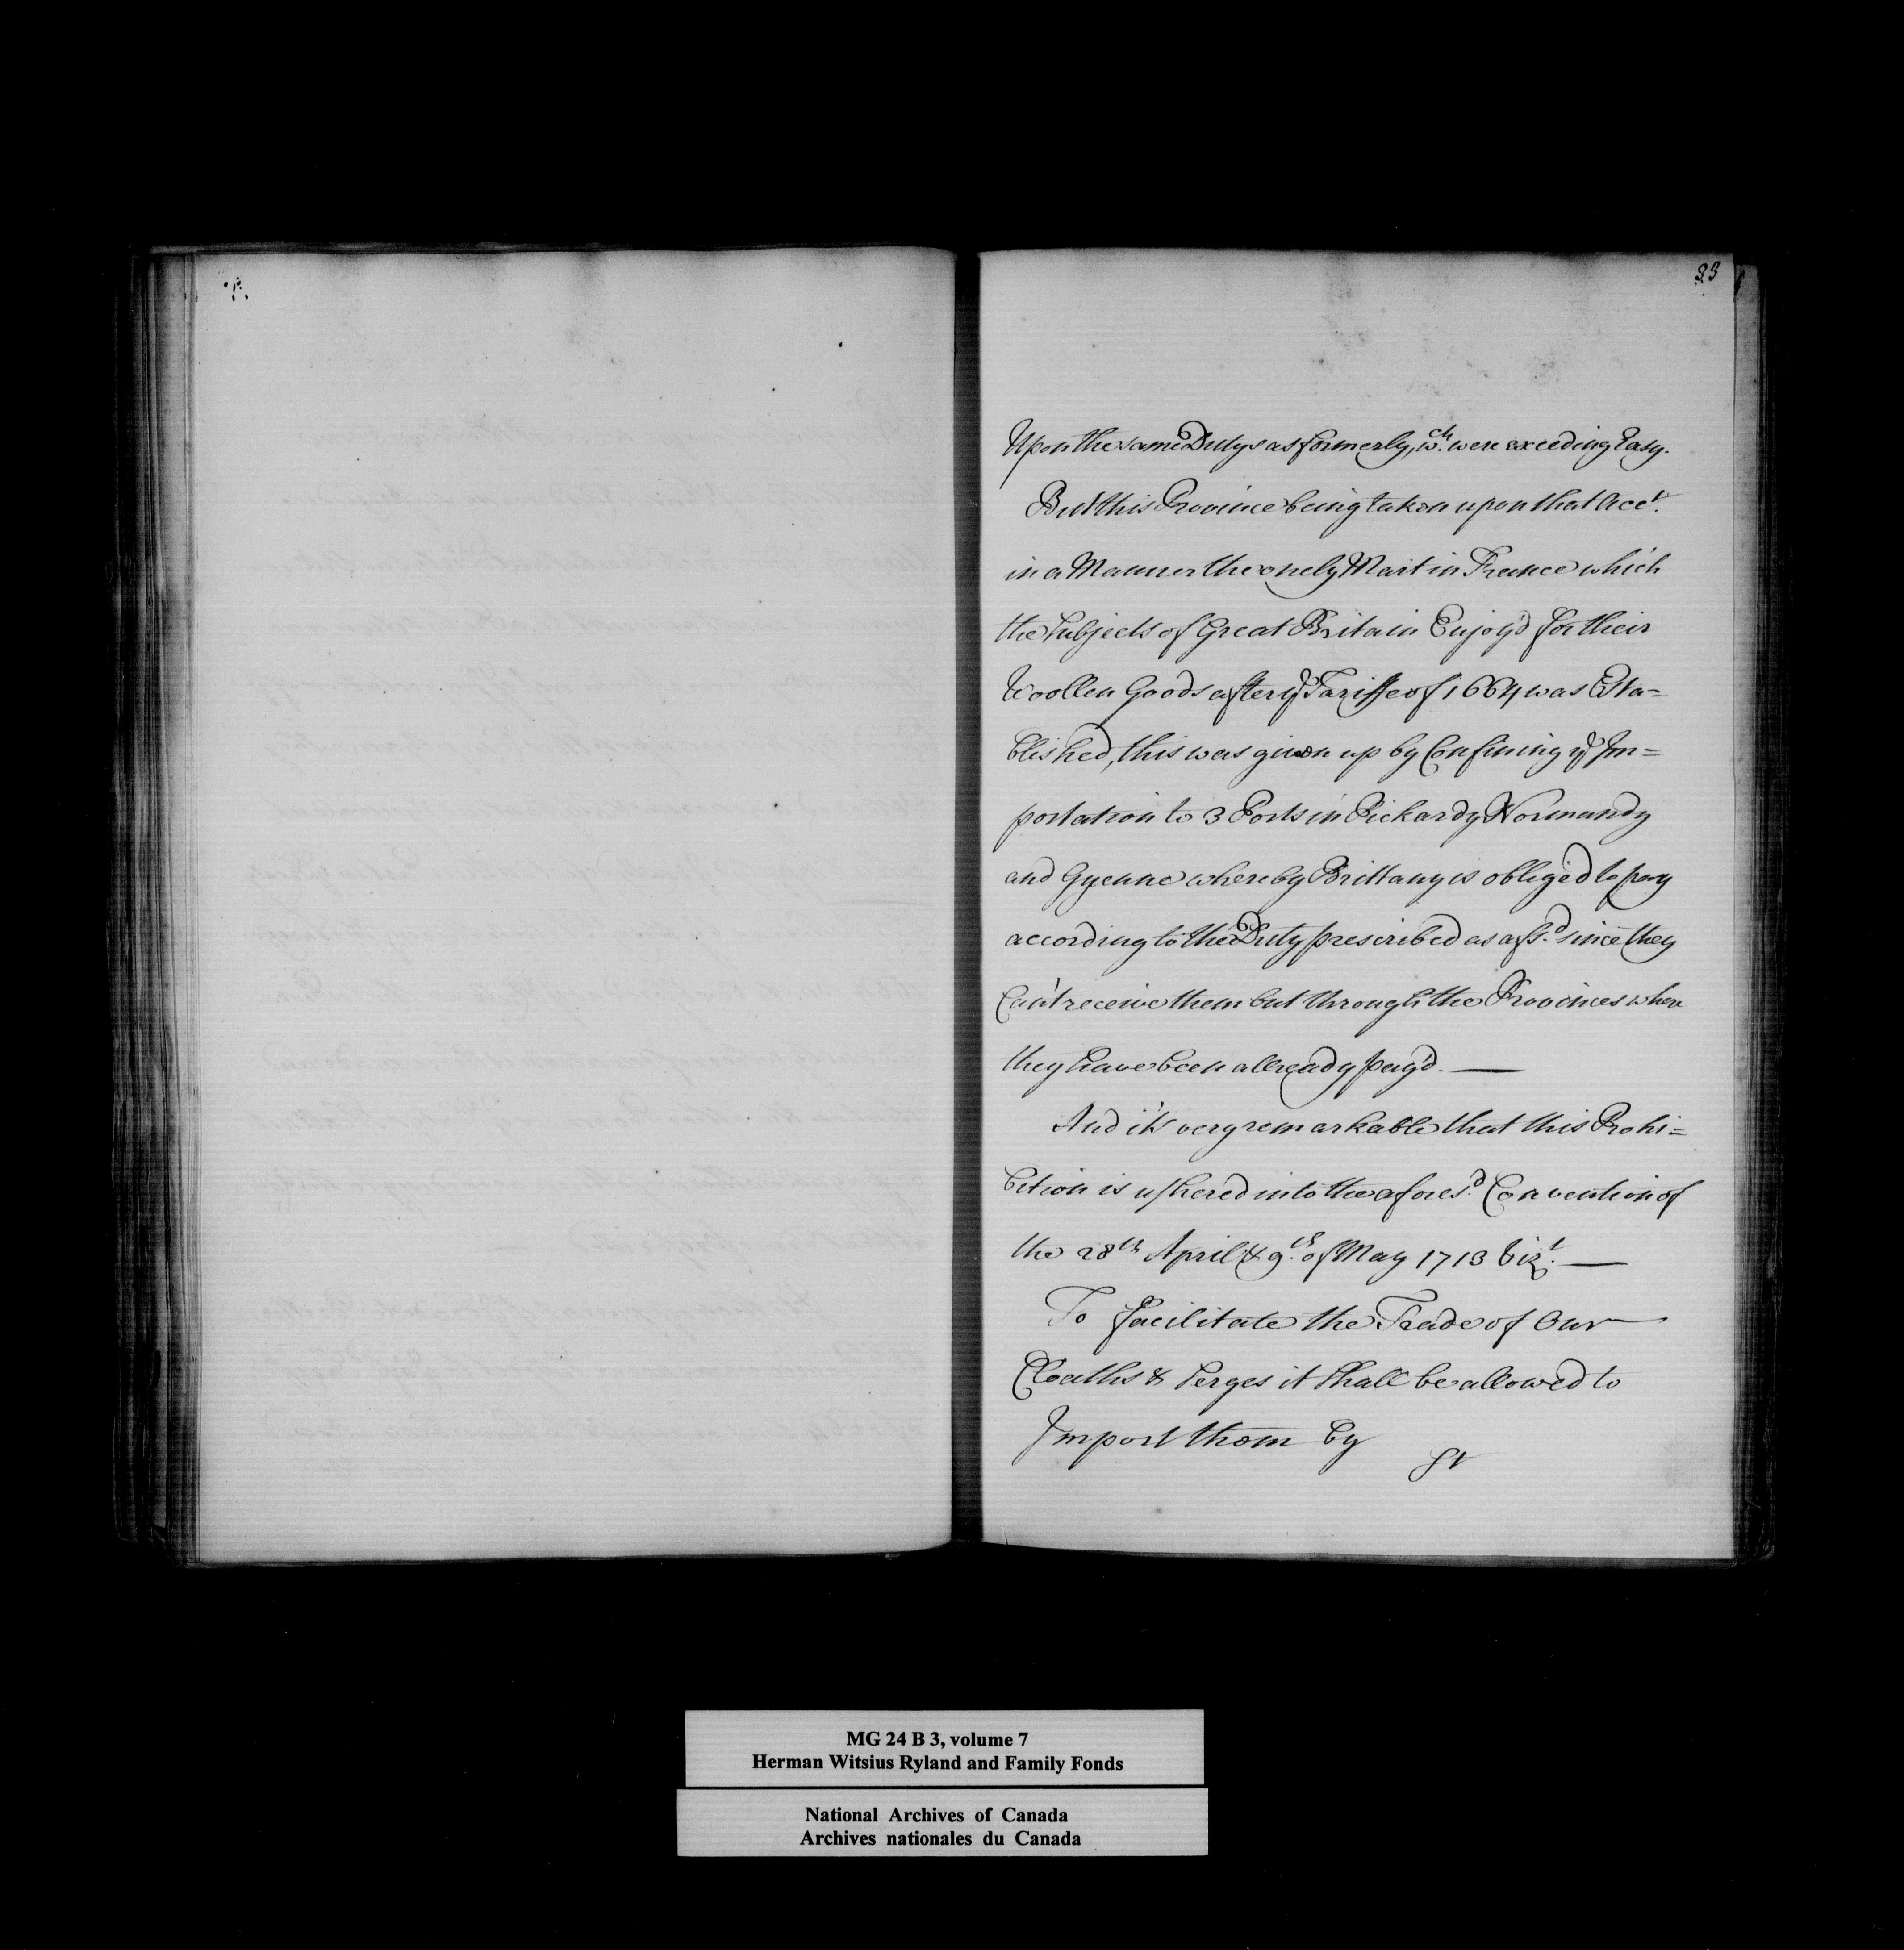 33
Upon the same Dutys as formerly, wch. were exceeding Easy.
But this Province being taken upon that Acct.
in a Manner the onely Mart in France which
the Subjects of Great Britain Enjoy'd for their
Woollen Goods after ye Tariffe of 1664 was Esta=
blished, this was given up by Confining ye Im=
portation to 3 Ports in Pickardy Normandy
and Gyenne whereby Brittany is obliged to pay
according to the Duty prescribed as afsd. since they
Can't receive them but through the Provinces where
they have been allready pay'd. —
And it's very remarkable that this Prohi=
bition is ushered into the aforesd. Convention of
the 28th April & 9th. of May 1713 Vizt. —
To facilitate the Trade of Our
Cloaths & Serges it shall be allowed to
Import them by
St
MG 24 B 3, volume 7
Herman Witsius Ryland and Family Fonds
National Archives of Canada
Archives nationales du Canada